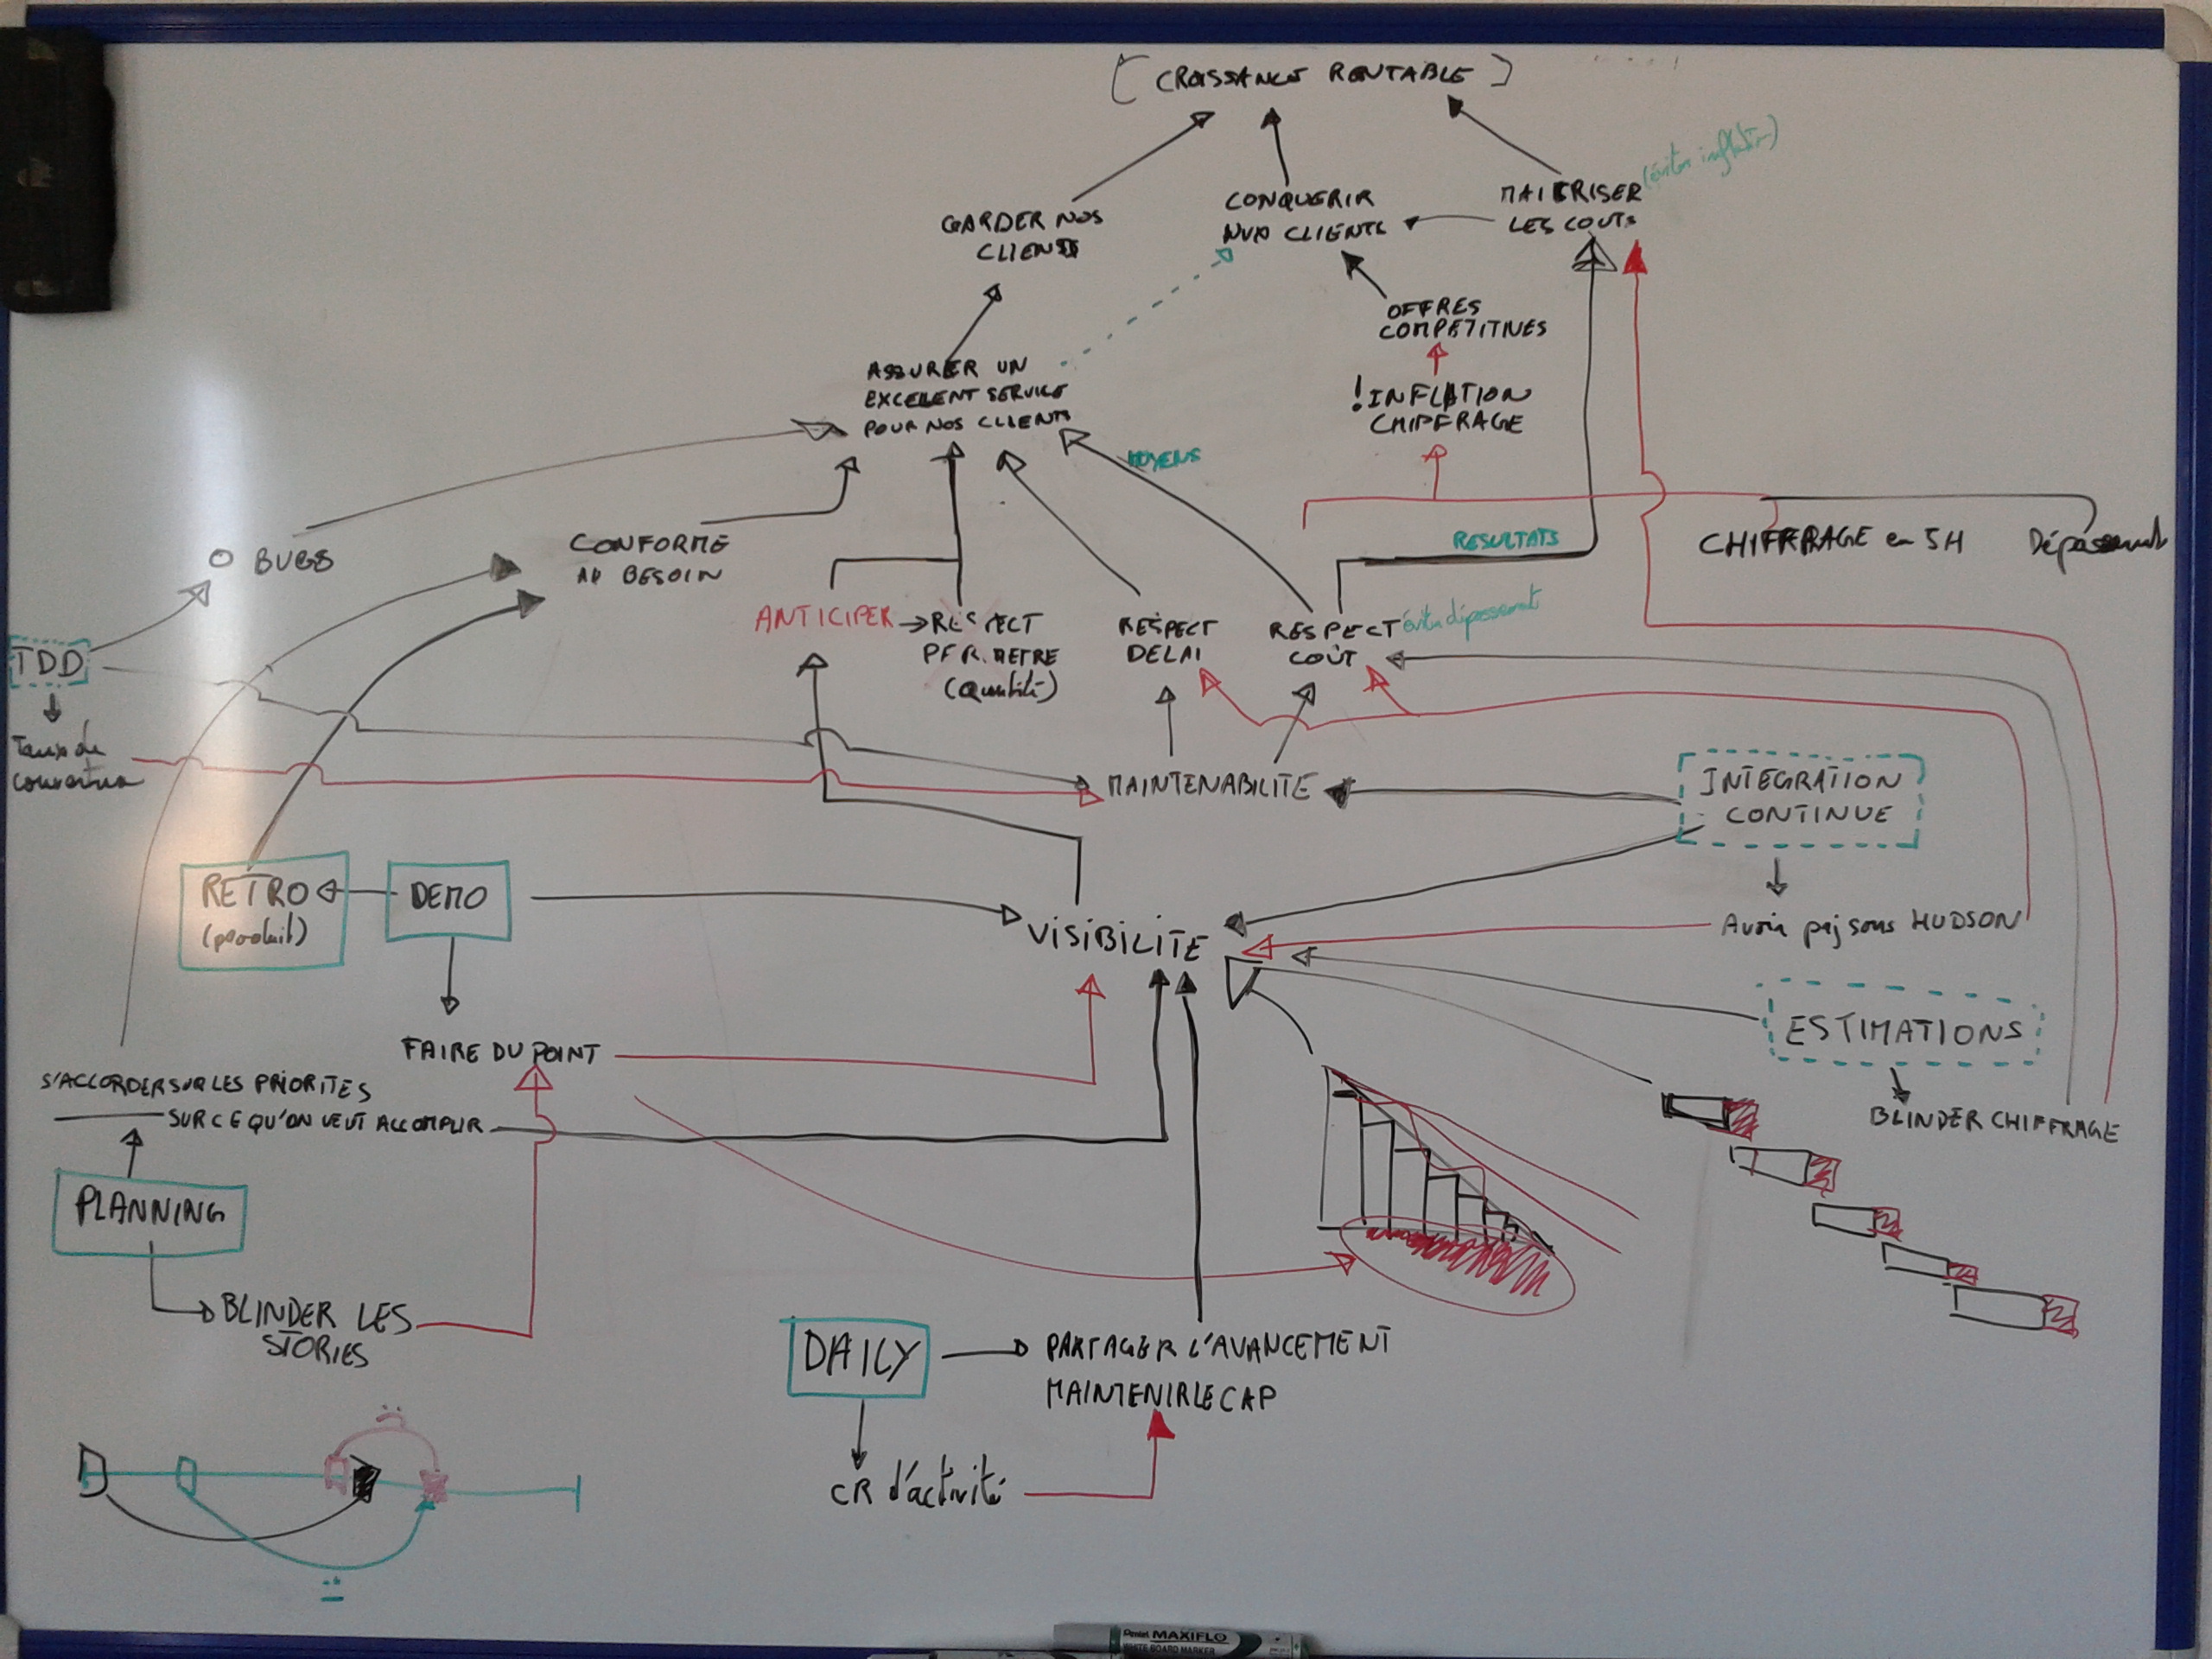 [CROISSANCE RENTABLE]
GARDER NOS
CLIENTS
CONQUERIR
NVX CLIENTS
MAITRISER
LES COUTS
(éviter inflation)
OFFRES
COMPETITIVES
!INFLATION
CHIFFRAGE
ASSURER UN
EXCELLENT SERVICE
POUR NOS CLIENTS
MOYENS
RESULTATS
CHIFFRAGE en 5H
Dépassement
O BUGS
CONFORME
AU BESOIN
ANTICIPER
RESPECT
PERIMETRE
(Quantité)
RESPECT
DELAI
RESPECT
COÛT
éviter dépassement
TDD
Taux de
couverture
MAINTENABILITE
INTEGRATION
CONTINUE
RETRO
(produit)
DEMO
VISIBILITE
Avoir prj sous HUDSON
ESTIMATIONS
BLINDER CHIFFRAGE
FAIRE DU POINT
S'ACCORDER SUR LES PRIORITES
SUR CE QU'ON VEUT ACCOMPLIR
PLANNING
BLINDER LES
STORIES
DAILY
PARTAGER L'AVANCEMENT
MAINTENIR LE CAP
CR d'activité
Pentel MAXIFLO
WHITE BOARD MARKER